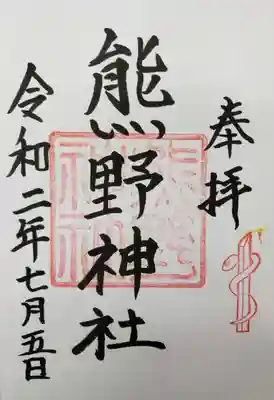 奉拝
熊野神社
令和二年七月五日